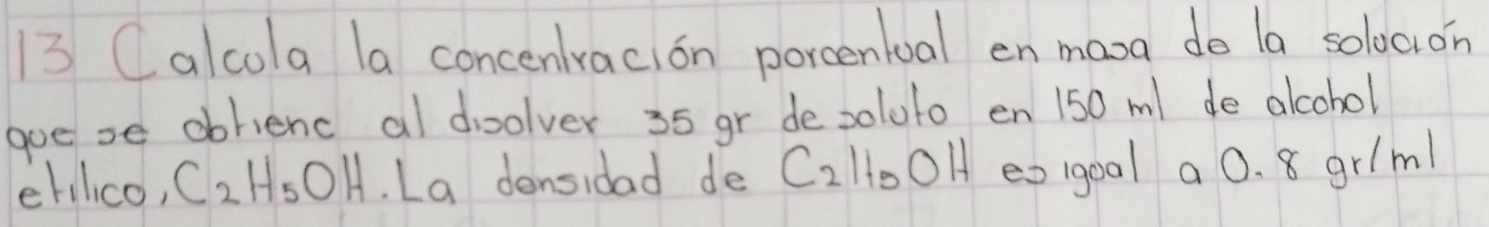 13 Calcula la concentración porcentual en masa de la solución
que se obtiene al disolver 35 gr de soluto en 150 ml de alcohol
etílico, C2H5OH. La densidad de C2H5OH es igual a 0.8 gr/ml